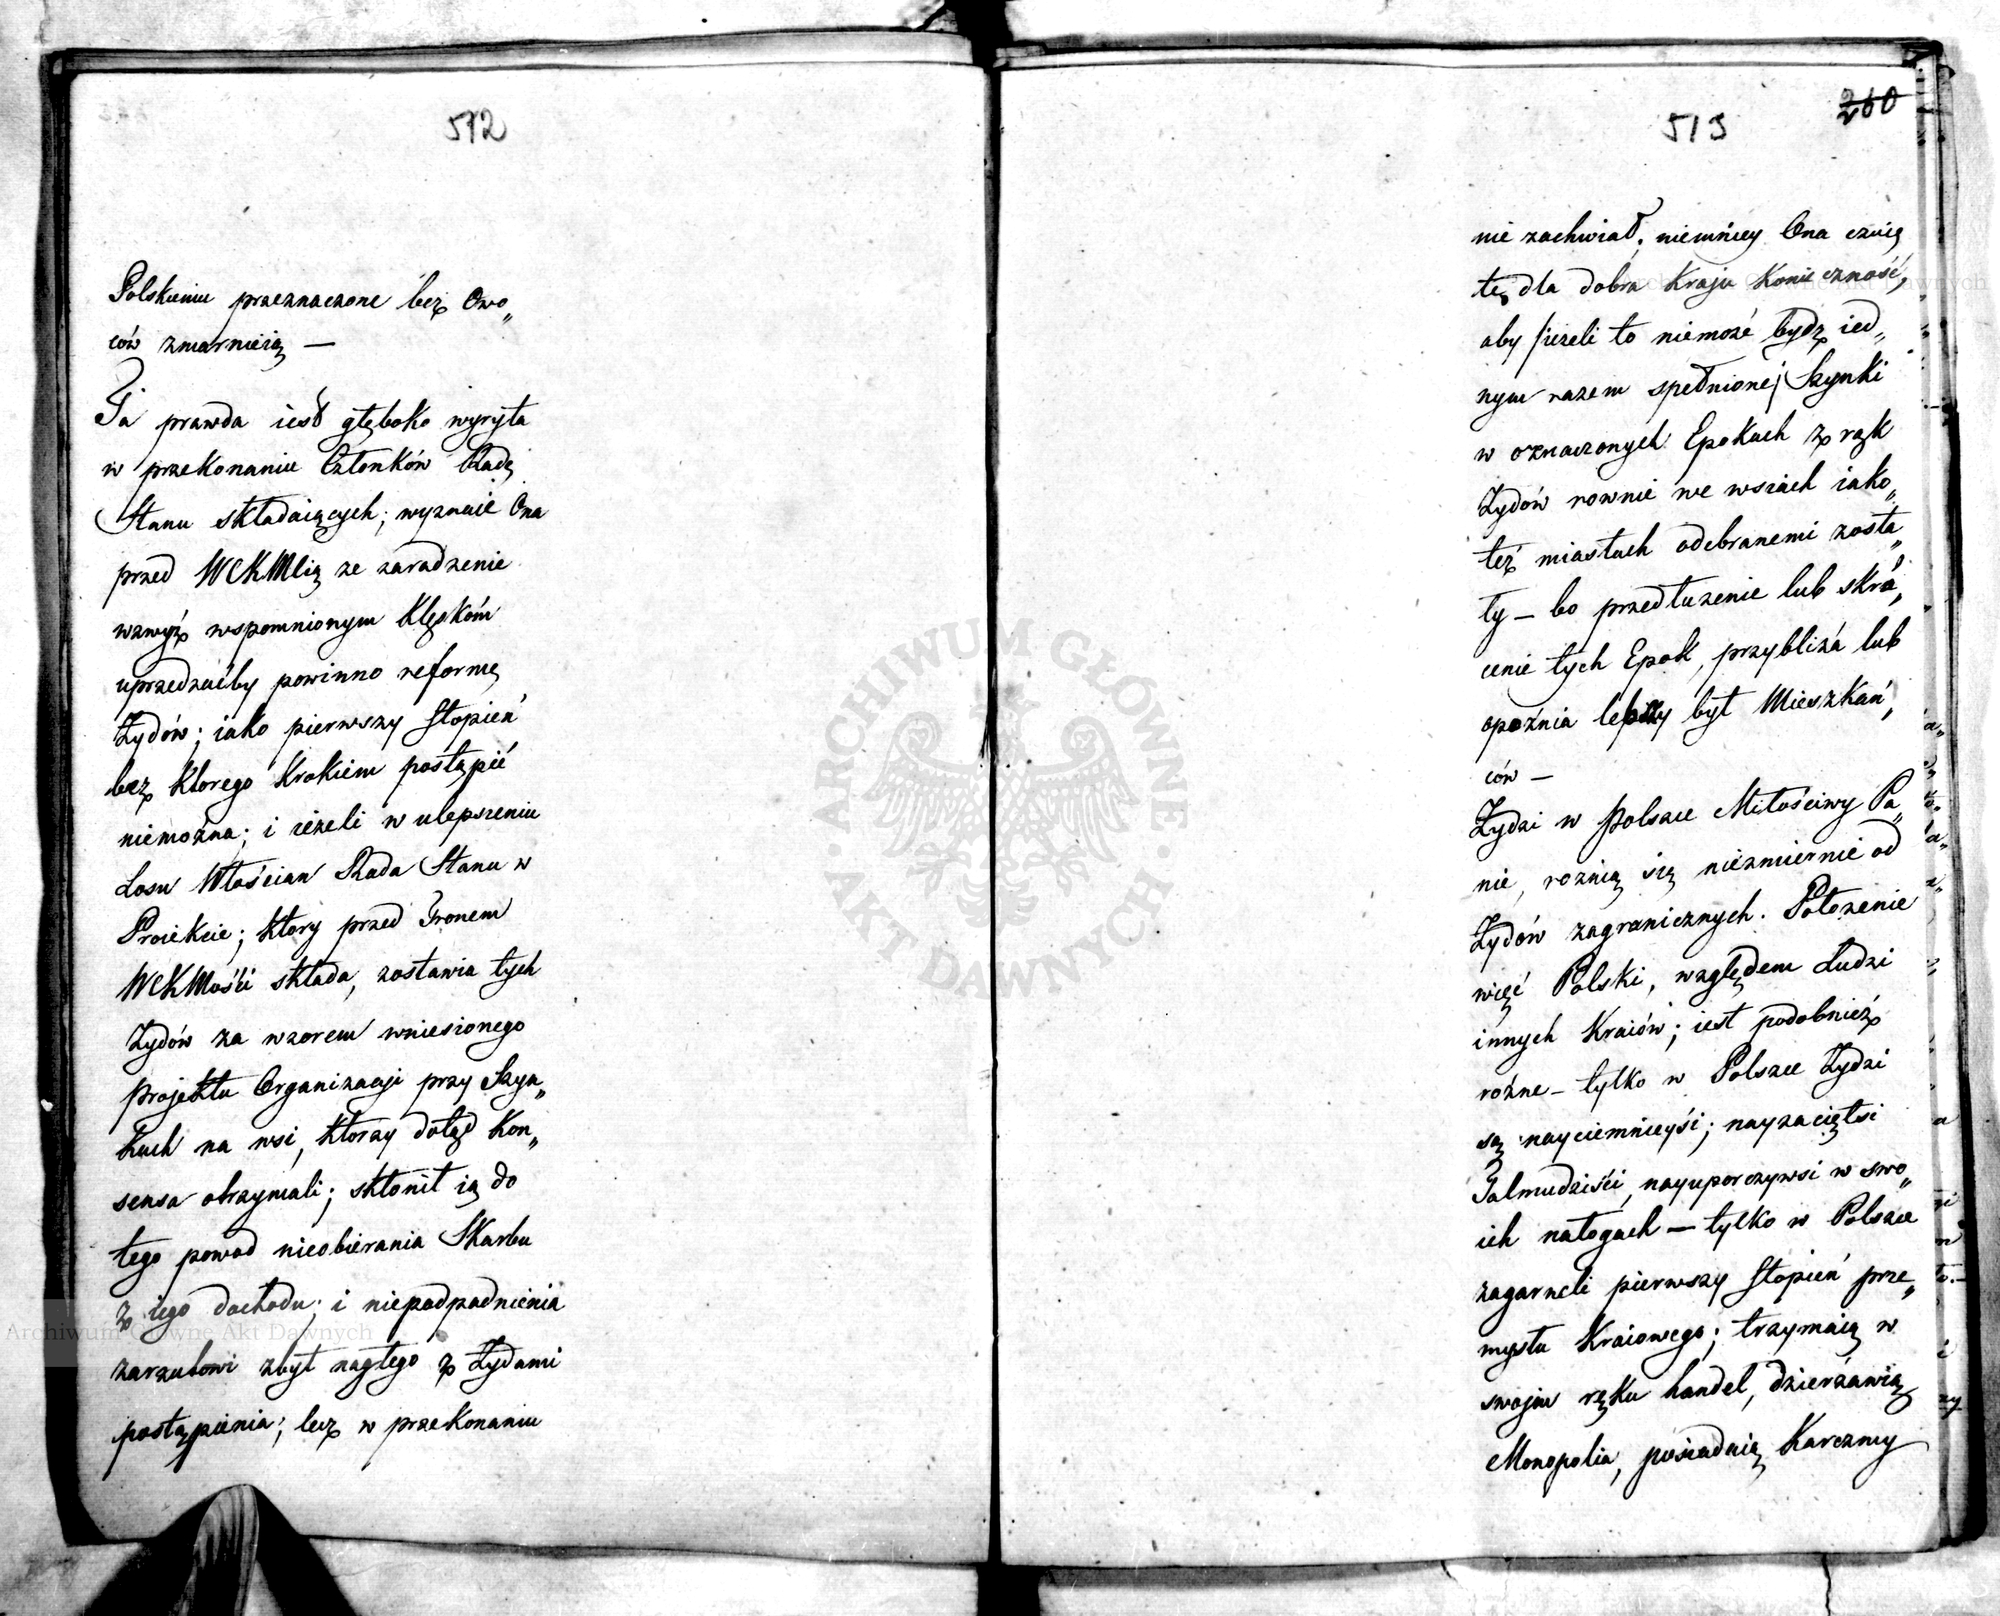 512
Polskiemu przeznaczone bez Owo„
ców zmarnieią —
Ta prawda iest głęboko wyryta
w przekonaniu Członków Radę
Stanu składaiących; wyznaie Ona
przed WCKMcią ze zaradzenie
wzwyż wspomnionym Klęskóm
uprzedzaćby powinno reformę
Żydów; iako pierwszy stopień
bez ktorego krokiem postąpić
niemożna; i ieżeli w ulepszeniu
Losu Włościan Rada Stanu w
Proiekcie; który przed Tronem
WCKMości składa, zostawia tych
Żydów za wzorem wniesionego
projektu Organizacji przy Szyn„
kach na wsi, ktorzy dotąd Kon„
sensa otrzymali; skłonił ią do
tego powod nieobierania Skarbu
z iego dochodu; i niepodpadnienia
zarzutowi zbyt nagłego z Żydami
postąpienia; lecz w przekonaniu
513
260
nie zachwiał, niemniey Ona czuie
tę dla dobra Kraju Konieczność,
aby /ieżeli to niemoże bydz ied„
nym razem spełnione/ Szynki
w oznaczonych Epokach z rąk
Żydów rownie we wsiach iako„
też miastach odebranemi zosta„
ły — bo przedłużenie lub skró„
cenie tych Epok, przybliża lub
opoźnia lepszy byt Mieszkań„
ców —
Żydzi w Polsce Miłościwy Pa„
nie, roznią się niezmiernie od
Żydów zagranicznych. Położenie
więć Polski, względem Ludzi
innych Kraiów; iest podobnież
rożne — tylko w Polsce Żydzi
są nayciemnieyśi; nayzaciętsi
Talmudziści, nayuporczywsi w swo„
ich nałogach — tylko w Polsce
zagarneli pierwszy stopień prze„
mysłu Kraiowego; trzymaią w
swoim ręku handel, dzierżawią
Monopolia, posiadaią Karczmy
ARCHIWUM GŁÓWNE AKT DAWNYCH
Archiwum Główne Akt Dawnych